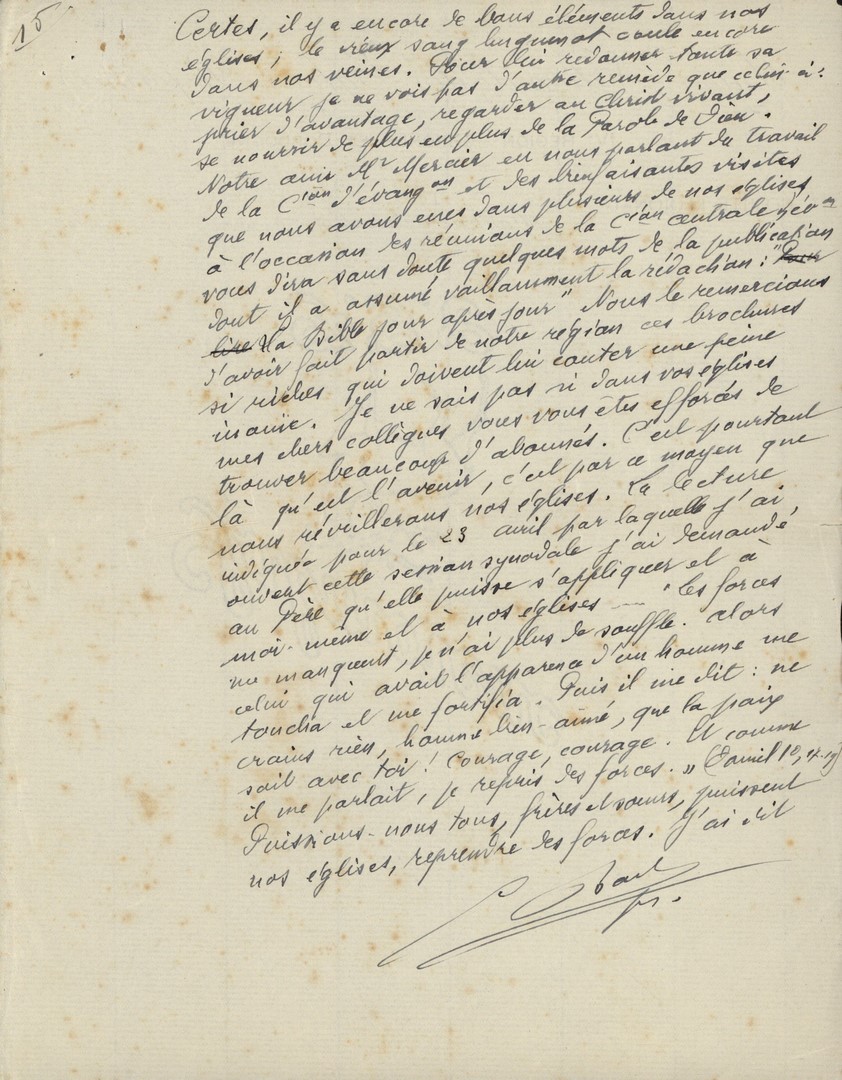 15
Certes, il y a encore de bons éléments dans nos
églises ; le vieux sang huguenot coule encore
dans nos veines. Pour lui redonner toute sa
vigueur je ne vois pas d'autre remède que celui-ci :
prier d'avantage, regarder au Christ vivant,
se nourrir de plus en plus de la Parole de Dieu.
Notre ami Mr Mercier en nous parlant du travail
de la Cion d'évangon et des bienfaisantes visites
que nous avons eues dans plusieurs de nos églises
à l'occasion des réunions de la Cion centrale d'évon
vous dira sans doute quelques mots de la publication
dont il a assumé vaillamment la rédaction : "Pour
lire La Bible jour après jour" Nous le remercions
d'avoir fait partir de notre région ces brochures
si riches qui doivent lui coûter une peine
inouïe. Je ne sais pas si dans vos églises
mes chers collègues vous vous êtes efforcés de
trouver beaucoup d'abonnés. C'est pourtant
là qu'est l'avenir, c'est par ce moyen que
nous réveillerons nos églises. La lecture
indiquée pour le 23 avril par laquelle j'ai
ouvert cette session synodale j'ai demandé
au Père qu'elle puisse s'appliquer et à
moi-même et à nos églises — "les forces
me manquent, je n'ai plus de souffle. Alors
celui qui avait l'apparence d'un homme me
toucha et me fortifia. Puis il me dit : ne
crains rien, homme bien-aimé, que la paix
soit avec toi ! courage, courage. Et comme
il me parlait, je repris des forces. " (Daniel 10,
Puissions-nous tous, frères et sœurs, puissent
nos églises, reprendre des forces. J'ai dit